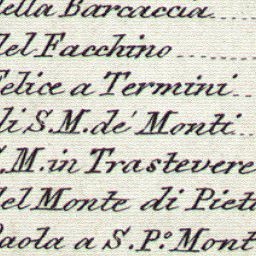 della Barcaccia
del Facchino
Felice a Termini
di S. M. de' Monti
S. M. in Trastevere
del Monte di Piet
Paola a S. P.º Mont